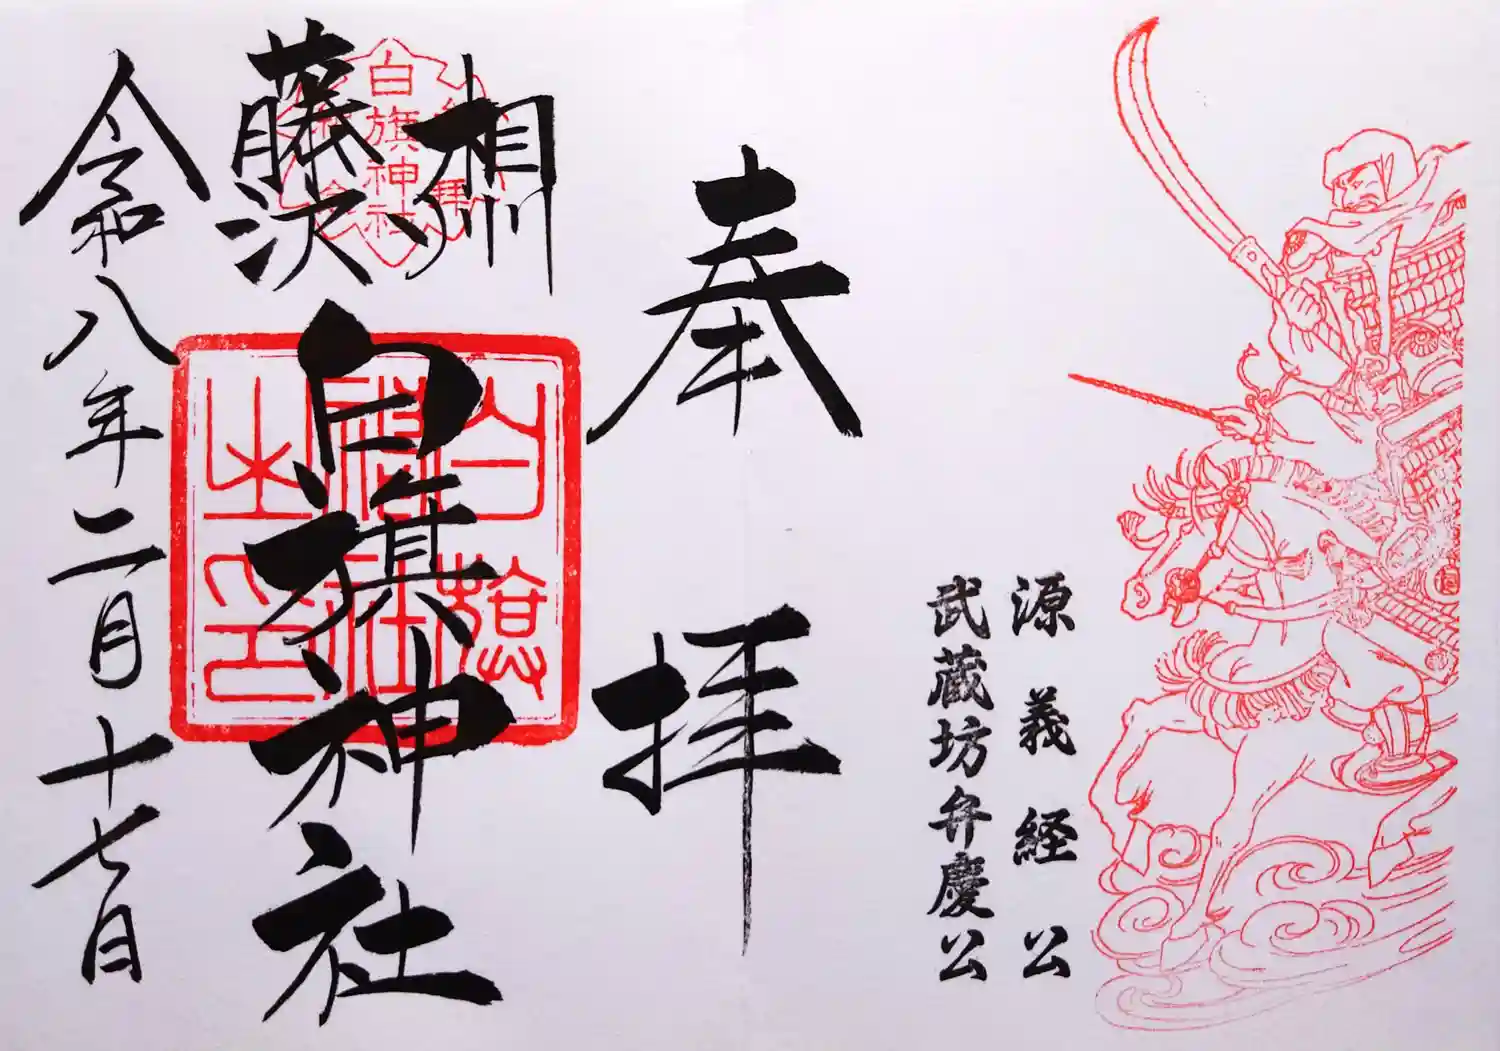 源義経公
武蔵坊弁慶公
奉拝
相州
藤沢
白旗神社
白旗神社
白旗神社之印
令和八年二月十七日